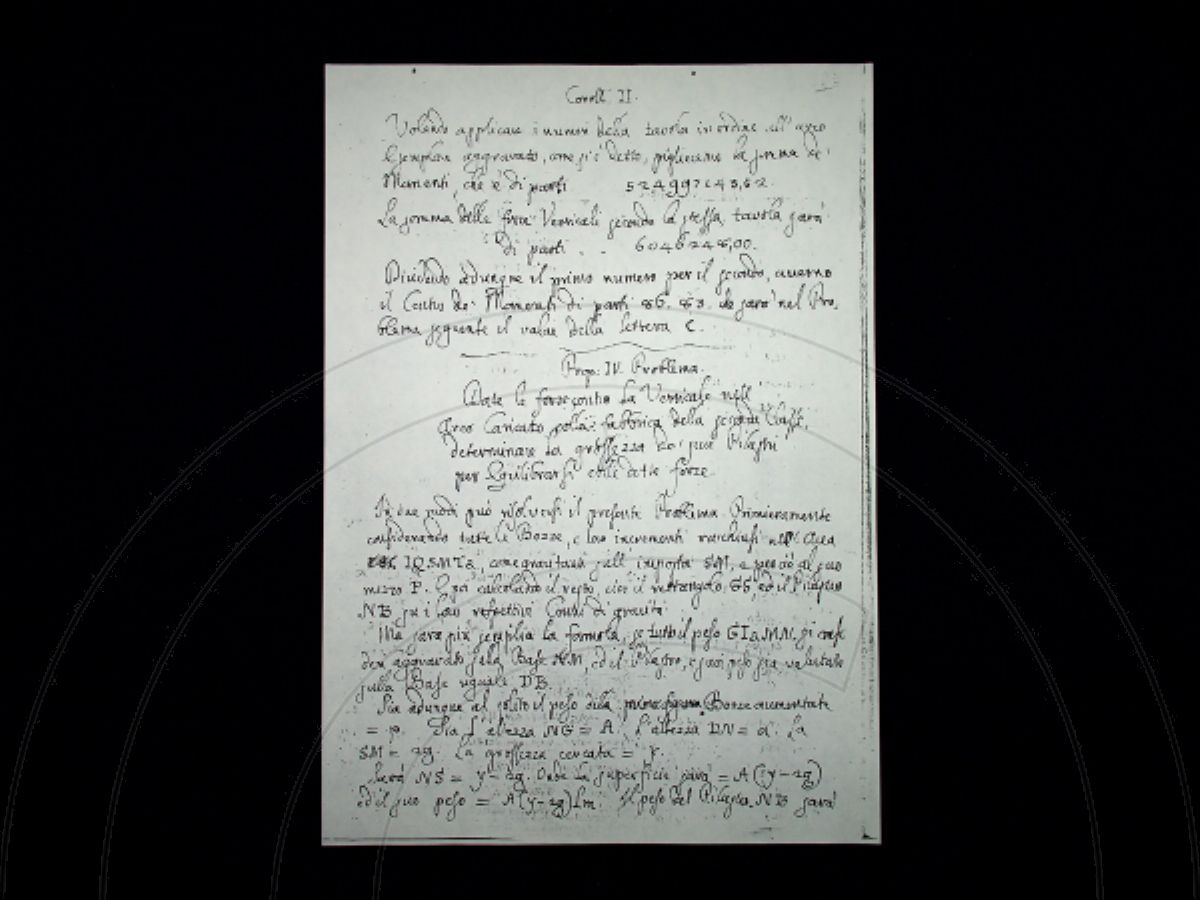 Coroll. II.
Volendo applicare i numeri della tavola in ordine all' arco
aggravato, come si è detto, piglieremo la somma de'
Momenti, che è di parti
La somma delle forze Verticali secondo la stessa tavola sarà
di parti . . 6046248,00.
Dividendo adunque il primo numero per il secondo, averemo
il Centro de' Momenti di parti 86. 83. che sarà nel Pro-
blema seguente il valore della lettera C.
Prop. IV. Problema.
Date le forze contro la Verticale nell'
Arco Caricato della fabbrica della seconda Classe,
determinare la grossezza de' suoi Pilastri
per Equilibrarsi colle dette forze.
In due modi può risolversi il presente Problema. Primieramente
considerando tutte le Bozze, e loro incrementi racchiusi nell' Area
IQSMTa, come gravitanti sull' imposta SM, e perciò al suo
mezzo P. E poi calcolando il resto, cioè il rettangolo GS, ed il Pilastro
NB su i loro respettivi Centri di gravità.
Ma sarà più semplice la formola, se tutto il peso GIaMN si consi-
deri aggravato sulla Base NM, ed il Pilastro, e suo peso sia valutato
sulla Base uguale DB.
Sia adunque al solito il peso della Bozze aumentate
= p. Sia l'altezza NG = A. L'altezza DN = a. La
SM = 2g. La grossezza cercata = y.
Sarà NS = y - 2g. Onde la superficie sarà = A (y - 2g)
ed il suo peso = A (y - 2g) Lm. Il peso del Pilastro NB sarà